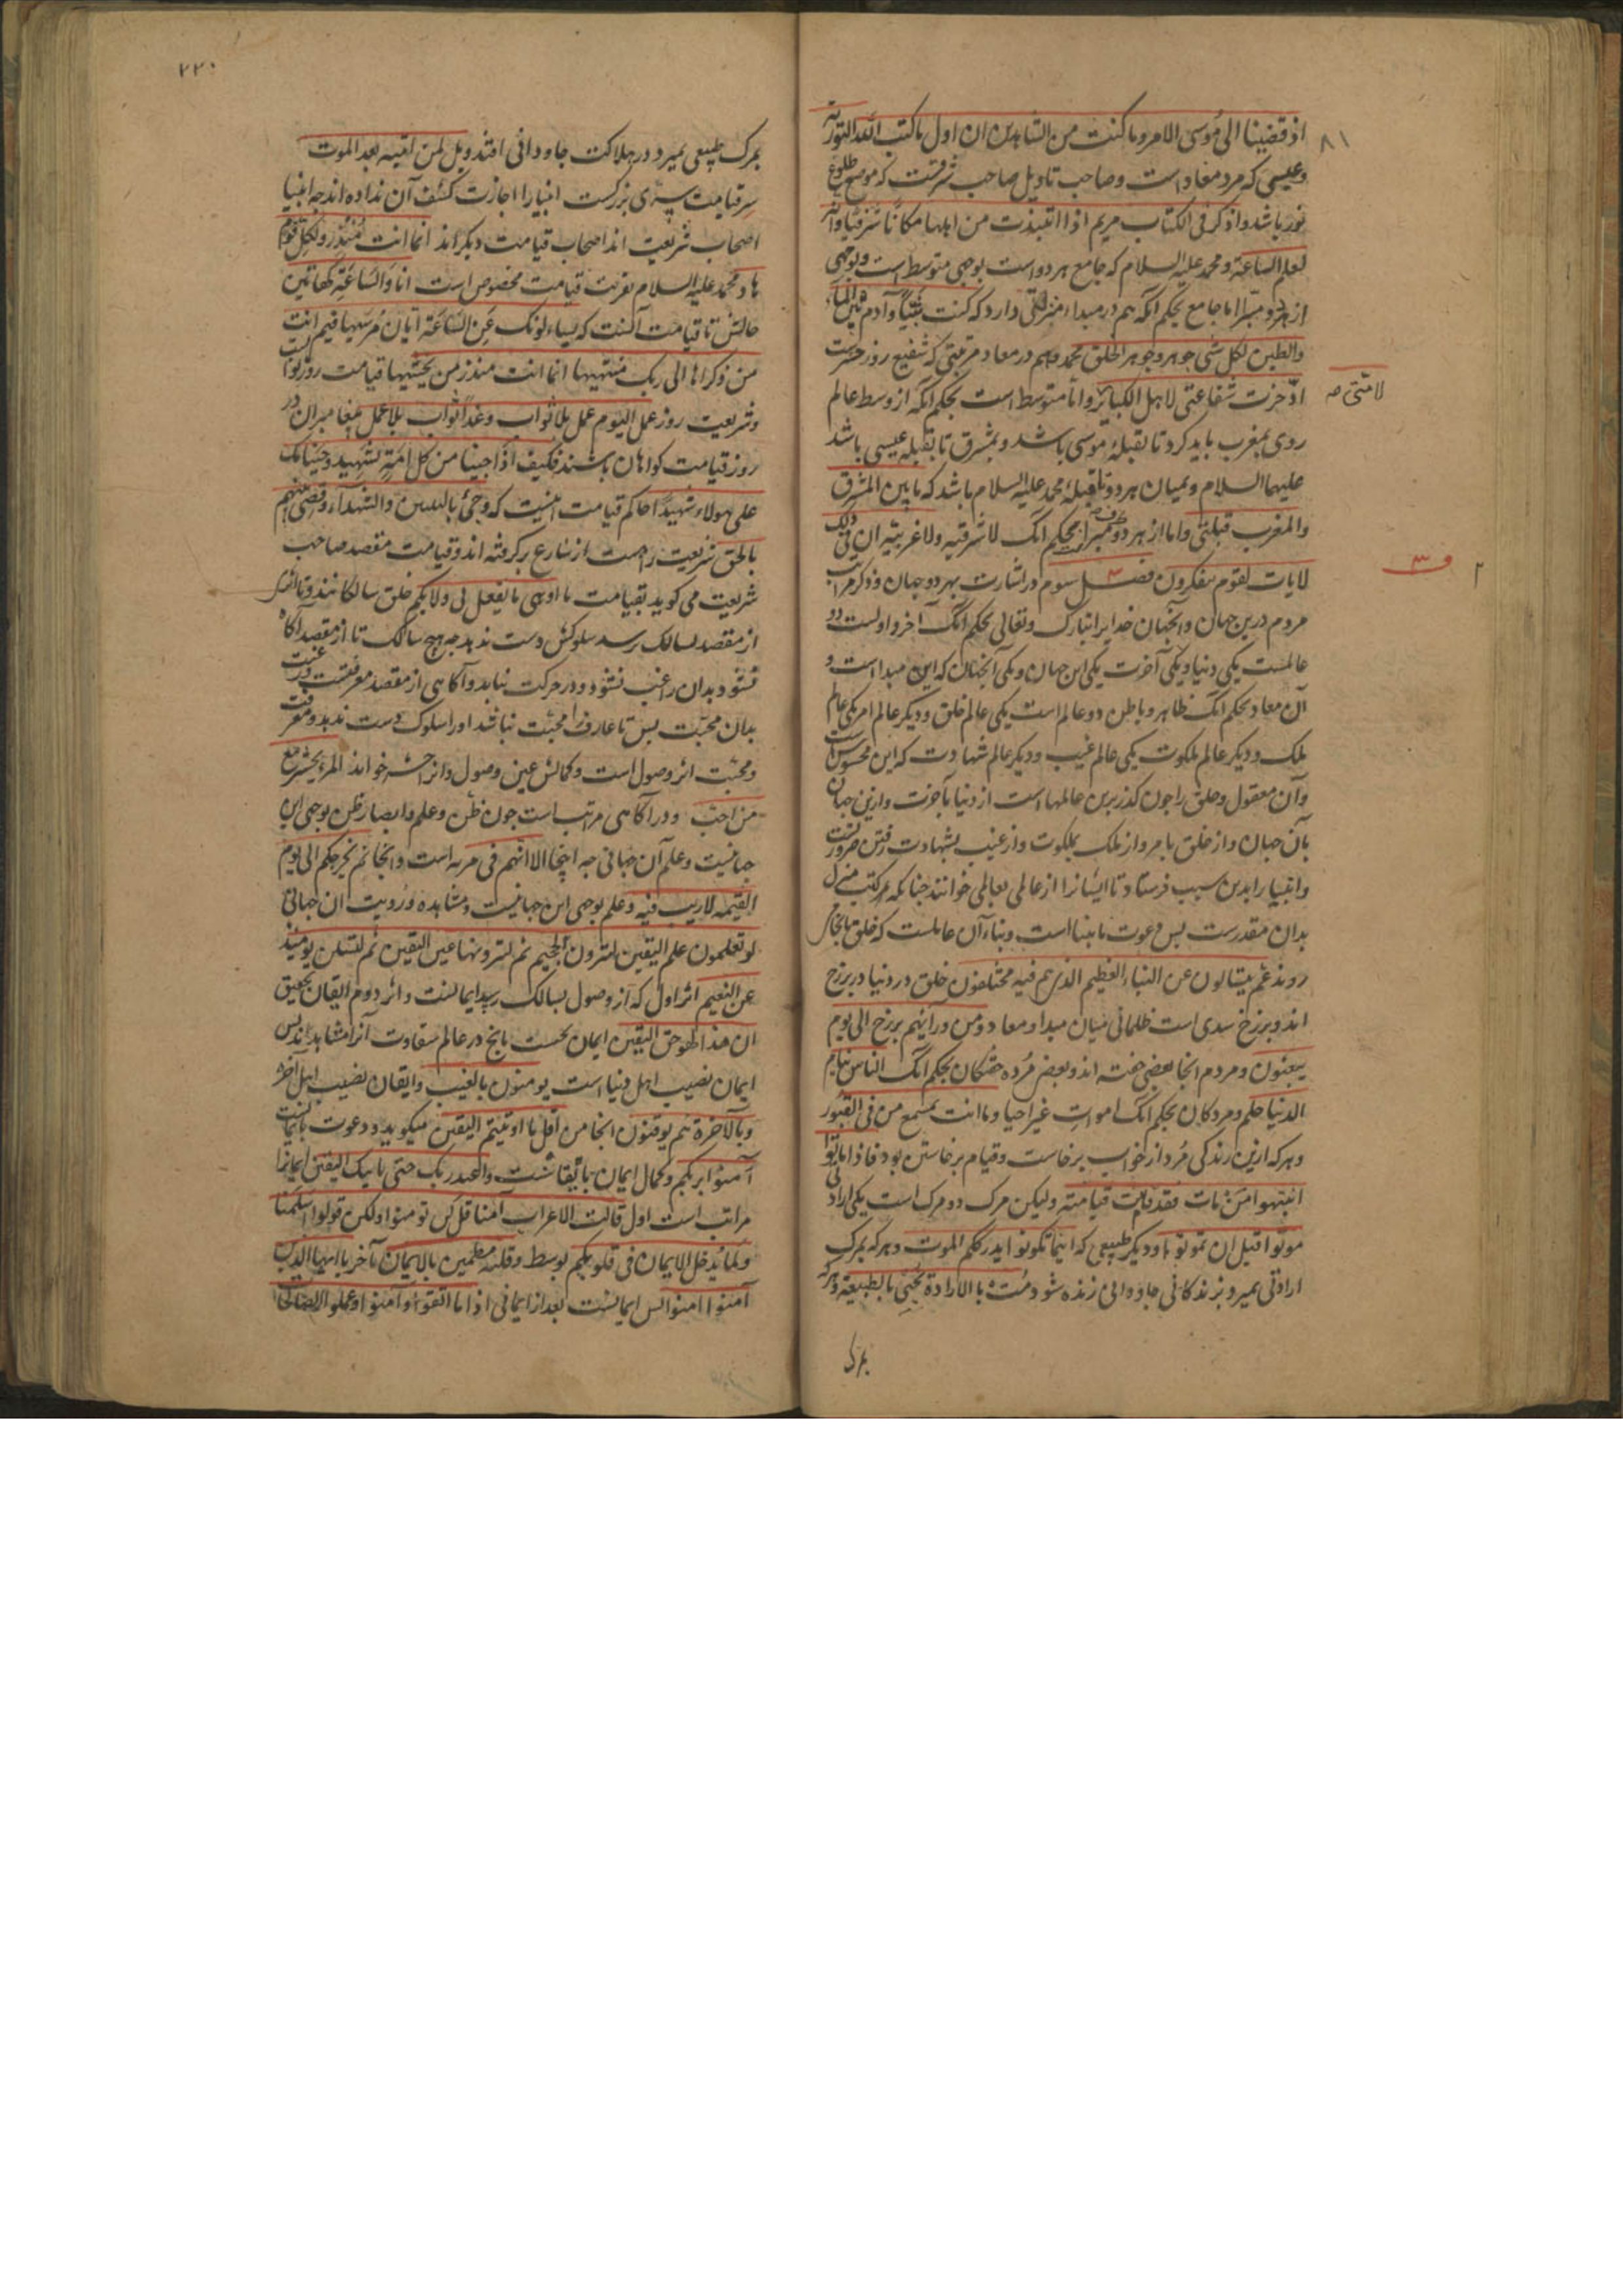 ۸۱
اذ قضینا الی موسی الامر وما کنت من الشاهدین ان اول ما کتب الله التوریة
وعیسی که مرد معاد است وصاحب تاویل صاحب شرقست که موضع طلوع
نور باشد واذکر فی الکتاب مریم اذا انتبذت من اهلها مکانا شرقیا وانه
لعلم الساعة ومحمد علیه السلام که جامع هر دو است بوجهی متوسط است وبوجهی
از هر دو مبرا اما جامع بحکم آنکه هم در مبداء منزلتی دارد که کنت نبیا وآدم بین الماء
والطین لکل شی جوهر وجوهر الخلق محمد وهم در معاد مرتبتی که شفیع روز حشرست
ادخرت شفاعتی لاهل الکبائر واما متوسط است بحکم آنکه از وسط عالم
لامتی صه
روی بمغرب باید کرد تا بقبلهٔ موسی باشد وبمشرق تا بقبله عیسی باشد
علیهما السلام ومیان هر دو تا قبلهٔ محمد علیه السلام باشد که ما بین المشرق
والمغرب قبلتی واما از هر دو طرف مبرا بحکم انک لا شرقیه ولا غربیه ان فی ذلک
لایات لقوم یتفکرون فصل سوم در اشارت بهر دو جهان وذکر مراتب
ف ۳
۲
مردم درین جهان وآنجهان خدایرا تبارک وتعالی بحکم آنک آخر واولست دو
عالمست یکی دنیا ویکی آخرت یکی این جهان ویکی آنجهان که این مبدا است و
آن معاد بحکم آنک ظاهر وباطن دو عالم است یکی عالم خلق ودیگر عالم امر یکی عالم
ملک ودیگر عالم ملکوت یکی عالم غیب ودیگر عالم شهادت که این محسوس است
وآن معقول وخلق را جون کذر برین عالمها است از دنیا بآخرت وازین جهان
بآن جهان واز خلق بامر واز ملک بملکوت واز غیب بشهادت رفتن ضرورتست
وانبیا را بدین سبب فرستاد تا ایشانرا از عالمی بعالمی خوانند جنانکه مرکب منزل
بدان مقدرست بس دعوت ما بنبا است ونباء آن عالمست که خلق بآنجا
روند عم یتسالون عن النباء العظیم الذی هم فیه مختلفون خلق در دنیا در برزخ
اند وبرزخ سدی است ظلمانی میان مبدا ومعاد ومن ورائهم برزخ الی یوم
یبعثون ومردم آنجا بعضی خفته اند وبعضی مُرده خفتگان بحکم آنک الناس نیام
الدنیا حلم ومردکان بحکم آنک اموات غیر احیا وما انت بمسمع من فی القبور
وهر که ازین زندگی مُرد از خواب برخاست وقیام برخاستن بود فاذا ماتوا
انتبهوا من مات فقد قامت قیامته ولیکن مرک دو مرک است یکی ارادی
موتوا قبل ان تموتوا ودیگر طبیعی که اینما تکونوا یدرککم الموت وهر که بمرک
ارادتی بمیرد بزندکانی جاودانی زنده شود مُت بالارادة تحیی بالطبیعة وهر که
بمرک
۲۲۰
بمرک طبیعی بمیرد در هلاکت جاودانی افتد ویل لمن انتبه بعد الموت
سر قیامت سری بزرکست انبیا را اجازت کشف آن نداده اند جه انبیا
اصحاب شریعت اند اصحاب قیامت دیگراند انما انت منذر ولکل قوم
هاد ومحمد علیه السلام بقربت قیامت مخصوص است انا والساعة کهاتین
حالش تا قیامت آنست که یسالونک عن الساعة ایان مرسیها فیم انت
من ذکراها الی ربک منتهیها انما انت منذر من یخشیها قیامت روز ثواب است
وشریعت روز عمل الیوم عمل بلا ثواب وغدا ثواب بلا عمل بیغامبران در
روز قیامت کواهان باشند فکیف اذا جئنا من کل امة بشهید وجئنا بک
علی هولاء شهیدا حاکم قیامت است که وجئ بالنبیین والشهدآء وقضی بینهم
بالحق شریعت راهست از شارع برکرفته اند وقیامت مقصد صاحب
شریعت می کوید بقیامت ما ادری ما یفعل بی ولا بکم خلق سالکانند وتا اثری
از مقصد بسالک نرسد سلوکش دست ندهد جه هیچ سالک تا از مقصد آکاه
نشود بدان راغب نشود ودر حرکت نیاید وآکاهی از مقصد معرفتست ورغبت
بدان محبت بس تا عارف را محبت نباشد اورا سلوک دست ندهد ومعرفت
ومحبت اثر وصول است وکمالش عین وصول وانرا حشر خوانند المرء یحشر مع
من احب ودر آکاهی مراتب است جون ظن وعلم وابصار ظن بوجهی این
جهانیست وعلم آن جهانی جه اینجا الا انهم فی مریه است وآنجا ثم یجمعکم الی یوم
القیمه لا ریب فیه وعلم بوجهی این جهانیست ومشاهده ورویت آن جهانی
لو تعلمون علم الیقین لترون الجحیم ثم لترونها عین الیقین ثم لتسئلن یومئذ
عن النعیم اثر اول که از وصول بسالک رسد ایمانست واثر دوم ایقان بحقیق
ان هذا لهو حق الیقین ایمان بآنچ در عالم شقاوت آنرا مشاهد بس
ایمان نصیب اهل دنیا است یومنون بالغیب وایقان نصیب اهل آخره
وبالاخرة هم یوقنون اینجا من اقل ما اوتیتم الیقین میکوید ودعوت بایمانست
آمنوا بربکم وکمال ایمان بایقانست واعبد ربک حتی یاتیک الیقین ایمانرا
مراتب است اول قالت الاعراب آمنا قل لن تومنوا ولکن قولوا اسلمنا
ولما یدخل الایمان فی قلوبکم بوسط وقلبه مطمئن بالایمان بآخر یا ایها الذین
آمنوا آمنوا بس ایمانست بعد از ایمانی اذا ما اتقوا وآمنوا وعملوا الصالحات